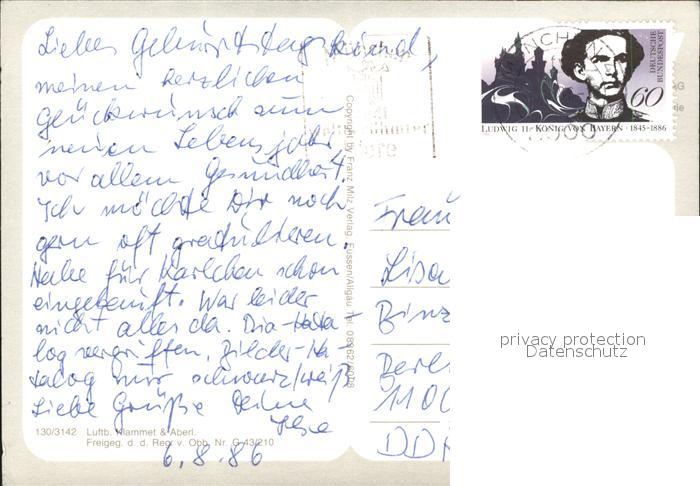 Liebes Geburtstagskind,
meinen herzlichen
Glückwunsch zum
neuen Lebensjahr,
vor allem Gesundheit.
Ich möchte Dir noch
gern oft gratulieren.
Habe für Karlchen schon
eingekauft. War leider
nicht alles da. Dia-Kata
log vergriffen, Bilder-Ka
talog nur schwarz/weiß
Liebe Grüße Deine
Ilse
130/3142 Luftb. Klammet & Aberl.
Freigeg. d. d. Reg. v. Obb. Nr. G 43/210
6.8.86
Copyright by Franz Milz Verlag, Füssen/Allgäu Tel. 08362/6008
DEUTSCHE
BUNDESPOST
60
LUDWIG II · KÖNIG VON BAYERN · 1845-1886
Frau
Lisa
Binz
Berl
110
DD
privacy protection
Datenschutz